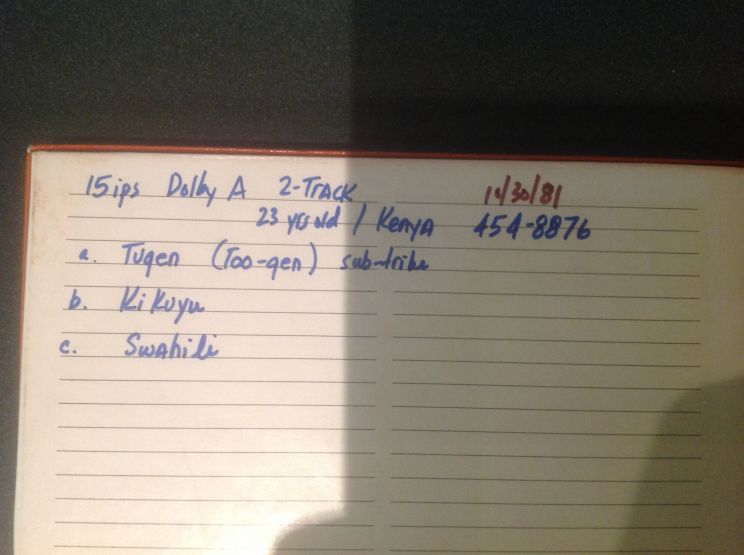 15ips Dolby A 2-Track 10/30/81
23 yrs old / Kenya 454-8876
a. Tugen (Too-gen) sub-tribe
b. Kikuyu
c. Swahili